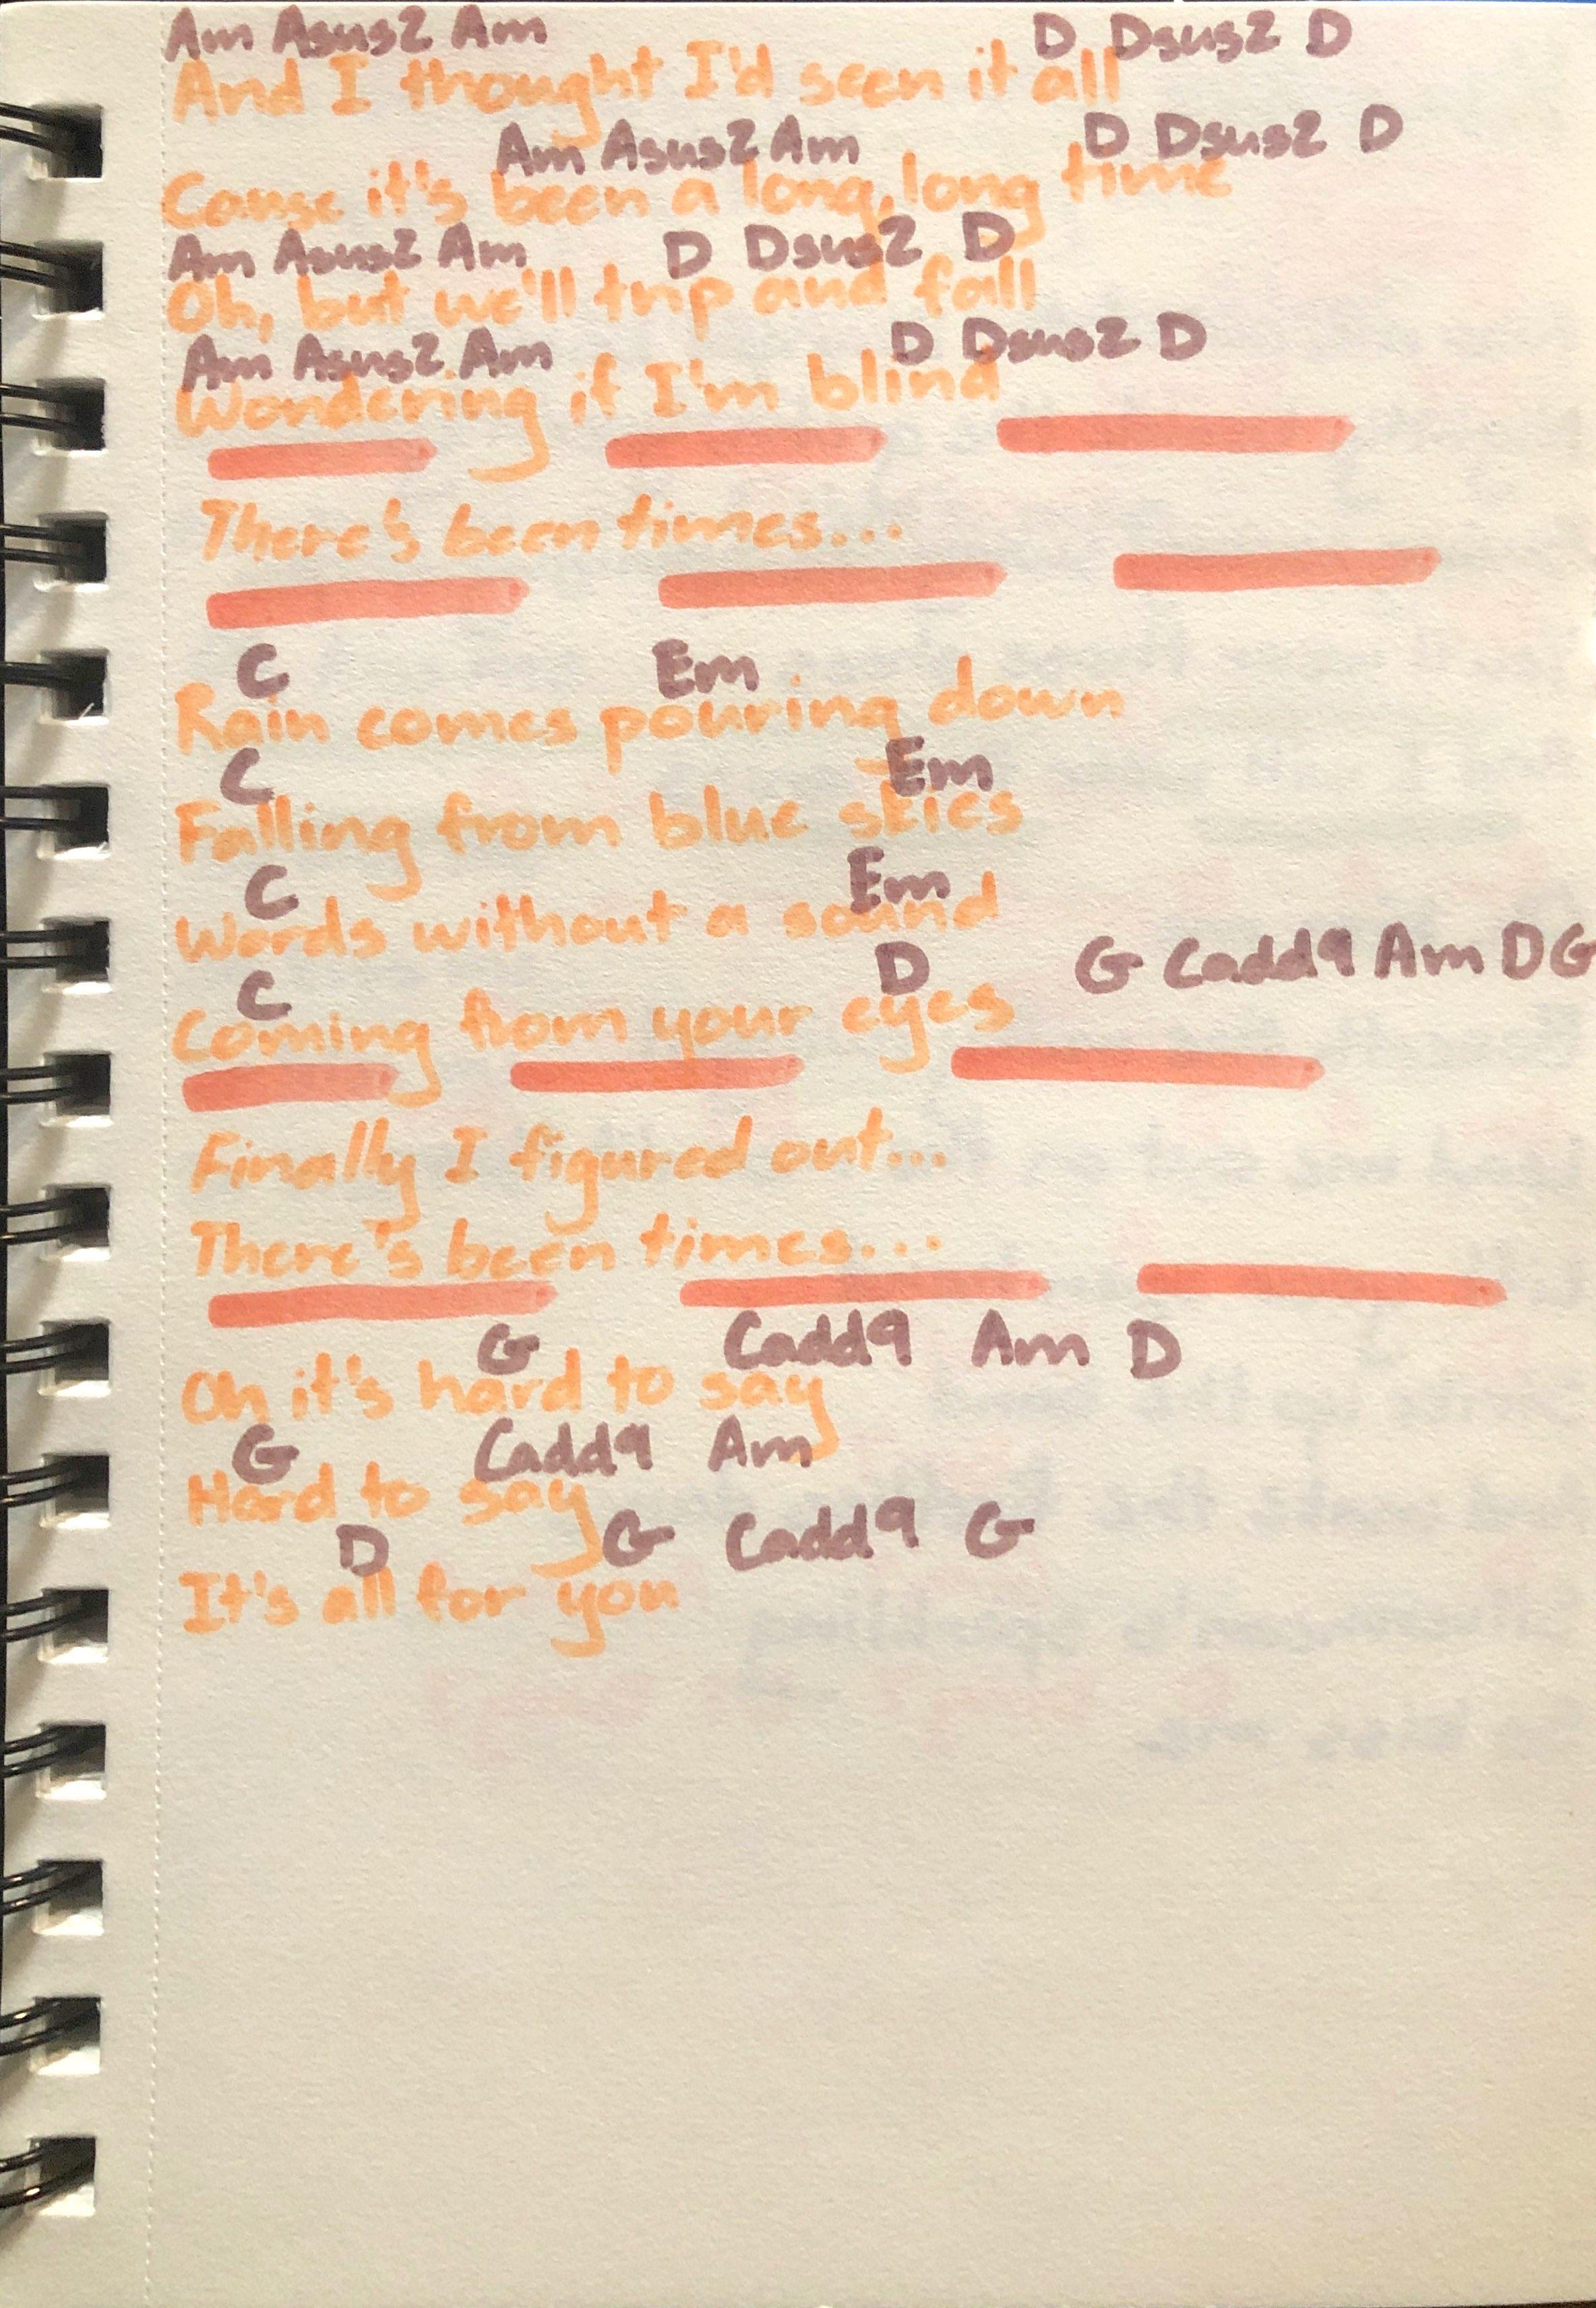 Am Asus2 Am D Dsus2 D
And I thought I'd seen it all
Am Asus2 Am D Dsus2 D
Cause it's been a long, long time
Am Asus2 Am D Dsus2 D
Oh, but we'll trip and fall
Am Asus2 Am D Dsus2 D
Wondering if I'm blind
There's been times...
C Em
Rain comes pouring down
C Em
Falling from blue skies
C Em
Words without a sound
C D G Cadd9 Am D G
Coming from your eyes
Finally I figured out...
There's been times...
G Cadd9 Am D
Oh it's hard to say
G Cadd9 Am
Hard to say
D G Cadd9 G
It's all for you